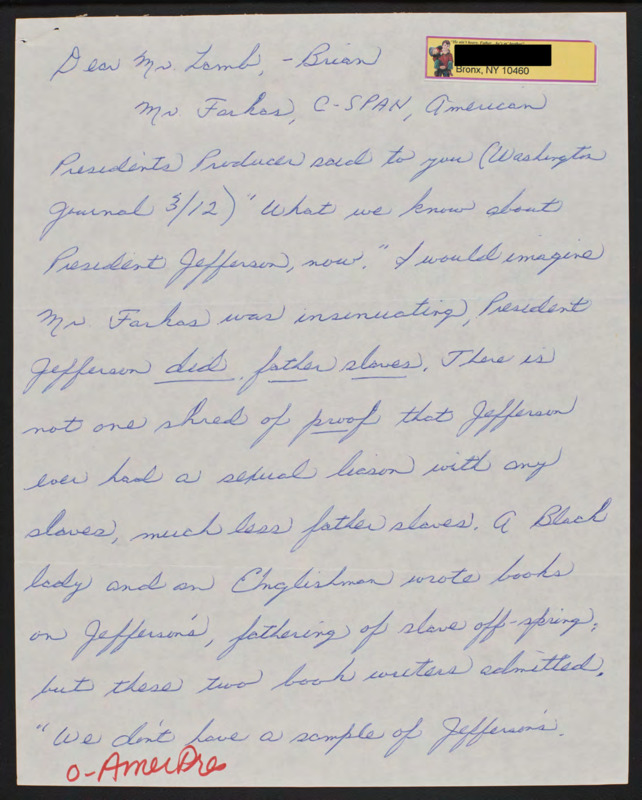 Dear Mr. Lamb, - Brian
Bronx, NY 10460
Mr. Farkas, C-SPAN, American
Presidents Producer said to you (Washington
Journal 3/12) "What we know about
President Jefferson, now." I would imagine
Mr. Farkas was insinuating, President
Jefferson did father slaves. There is
not one shred of proof that Jefferson
ever had a sexual liason with any
slaves, much less father slaves. A Black
lady and an Englishman wrote books
on Jefferson's, fathering of slave off-spring;
but these two book writers admitted,
"We don't have a sample of Jefferson's.
O-AmerPre